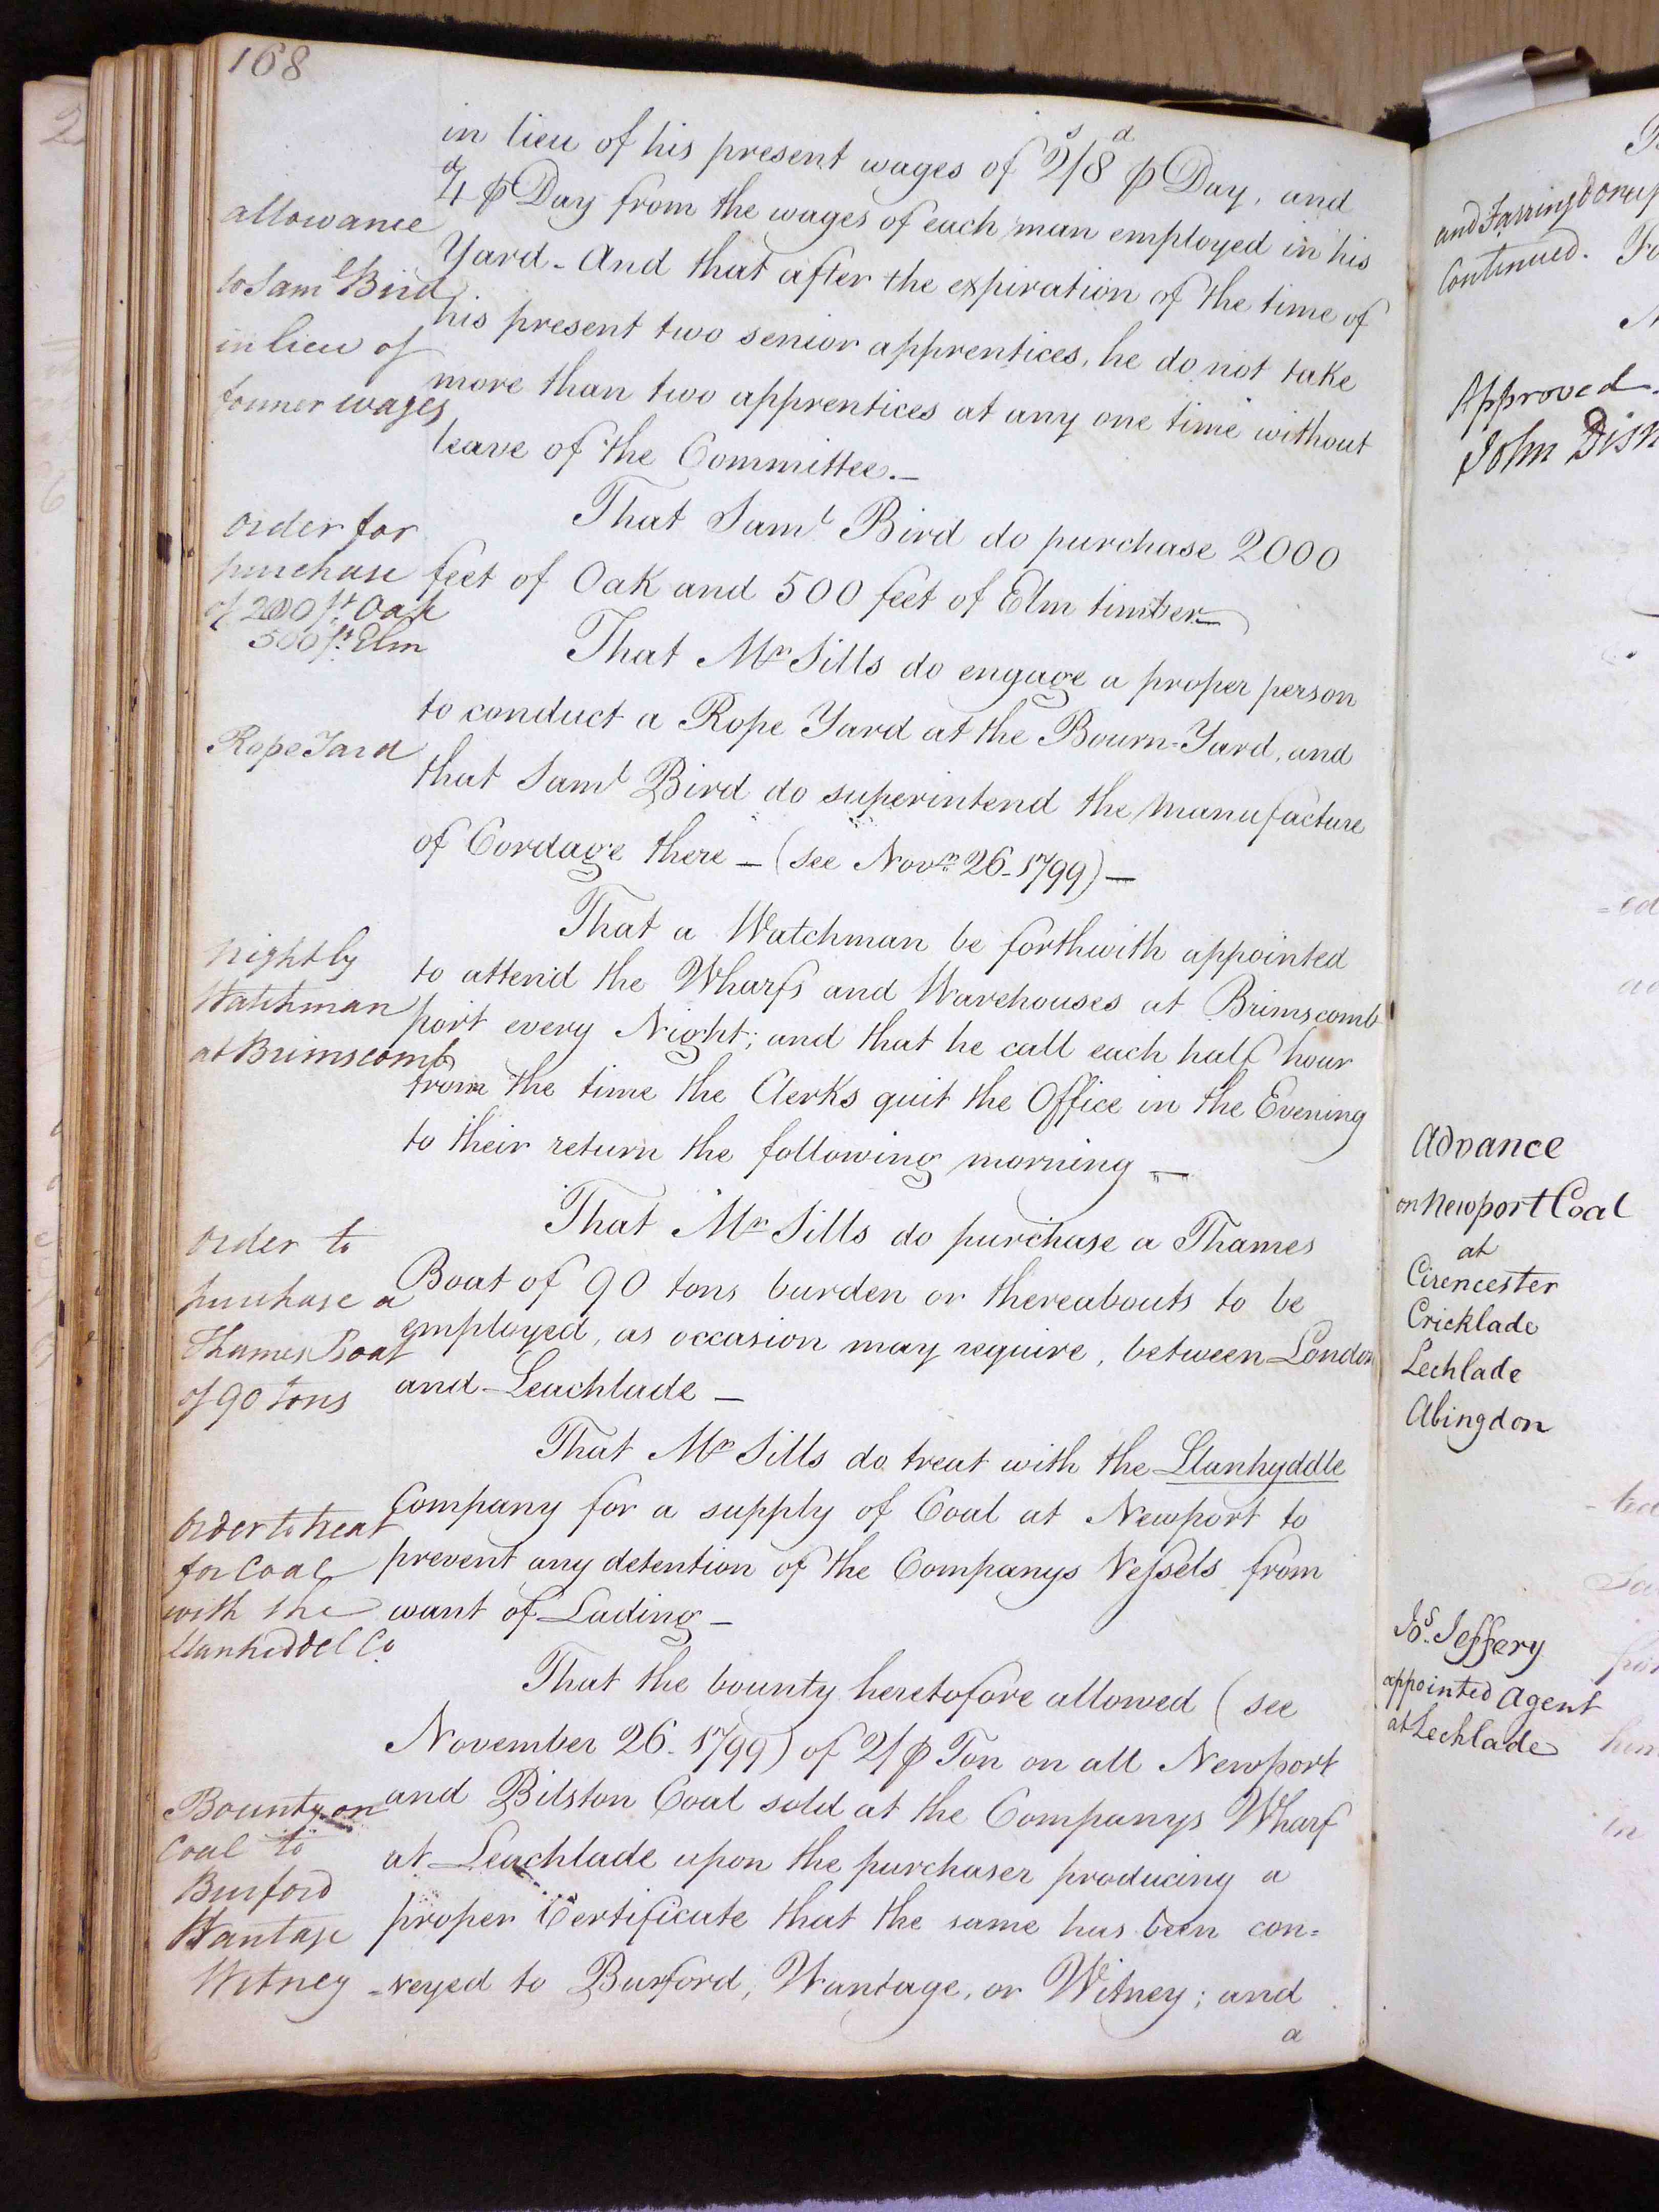 168
in lieu of his present wages of 2/8 ⅌ Day, and
4 ⅌ Day from the wages of each man employed in his
Yard - And that after the expiration of the time of
his present two senior apprentices, he do not take
more than two apprentices at any one time without
leave of the Committee. -
allowance
to Saml Bird
in lieu of
former wages
That Saml Bird do purchase 2000
feet of Oak and 500 feet of Elm timber -
order for
purchase
of 2000 ft Oak
500 ft. Elm
That Mr Sills do engage a proper person
to conduct a Rope Yard at the Bourn-Yard, and
that Saml Bird do superintend the Manufacture
of Cordage there - (see Novr. 26 - 1799) -
Rope Yard
That a Watchman be forthwith appointed
to attend the Wharfs and Warehouses at Brimscomb
port every Night; and that he call each half hour
from the time the Clerks quit the Office in the Evening
to their return the following morning -
Nightly
Watchman
at Brimscomb
That Mr Sills do purchase a Thames
Boat of 90 tons burden or thereabouts to be
employed, as occasion may require, between London
and Leachlade -
order to
purchase a
Thames Boat
of 90 tons
That Mr Sills do treat with the Llanhyddle
Company for a supply of Coal at Newport to
prevent any detention of the Companys Vessels from
want of Lading -
Order to treat
for Coal
with the
Llanhiddel Co.
That the bounty heretofore allowed (see
November 26 - 1799) of 2/ ⅌ Ton on all Newport
and Bilston Coal sold at the Companys Wharf
at Leachlade upon the purchaser producing a
proper Certificate that the same has been con=
=veyed to Burford, Wantage, or Witney; and
a
Bounty on
Coal to
Burford
Wantage
Witney
and Farringdon
Continued.
Approved
John
Advance
on Newport Coal
at
Cirencester
Cricklade
Lechlade
Abingdon
Jos. Jeffery
appointed Agent
at Lechlade